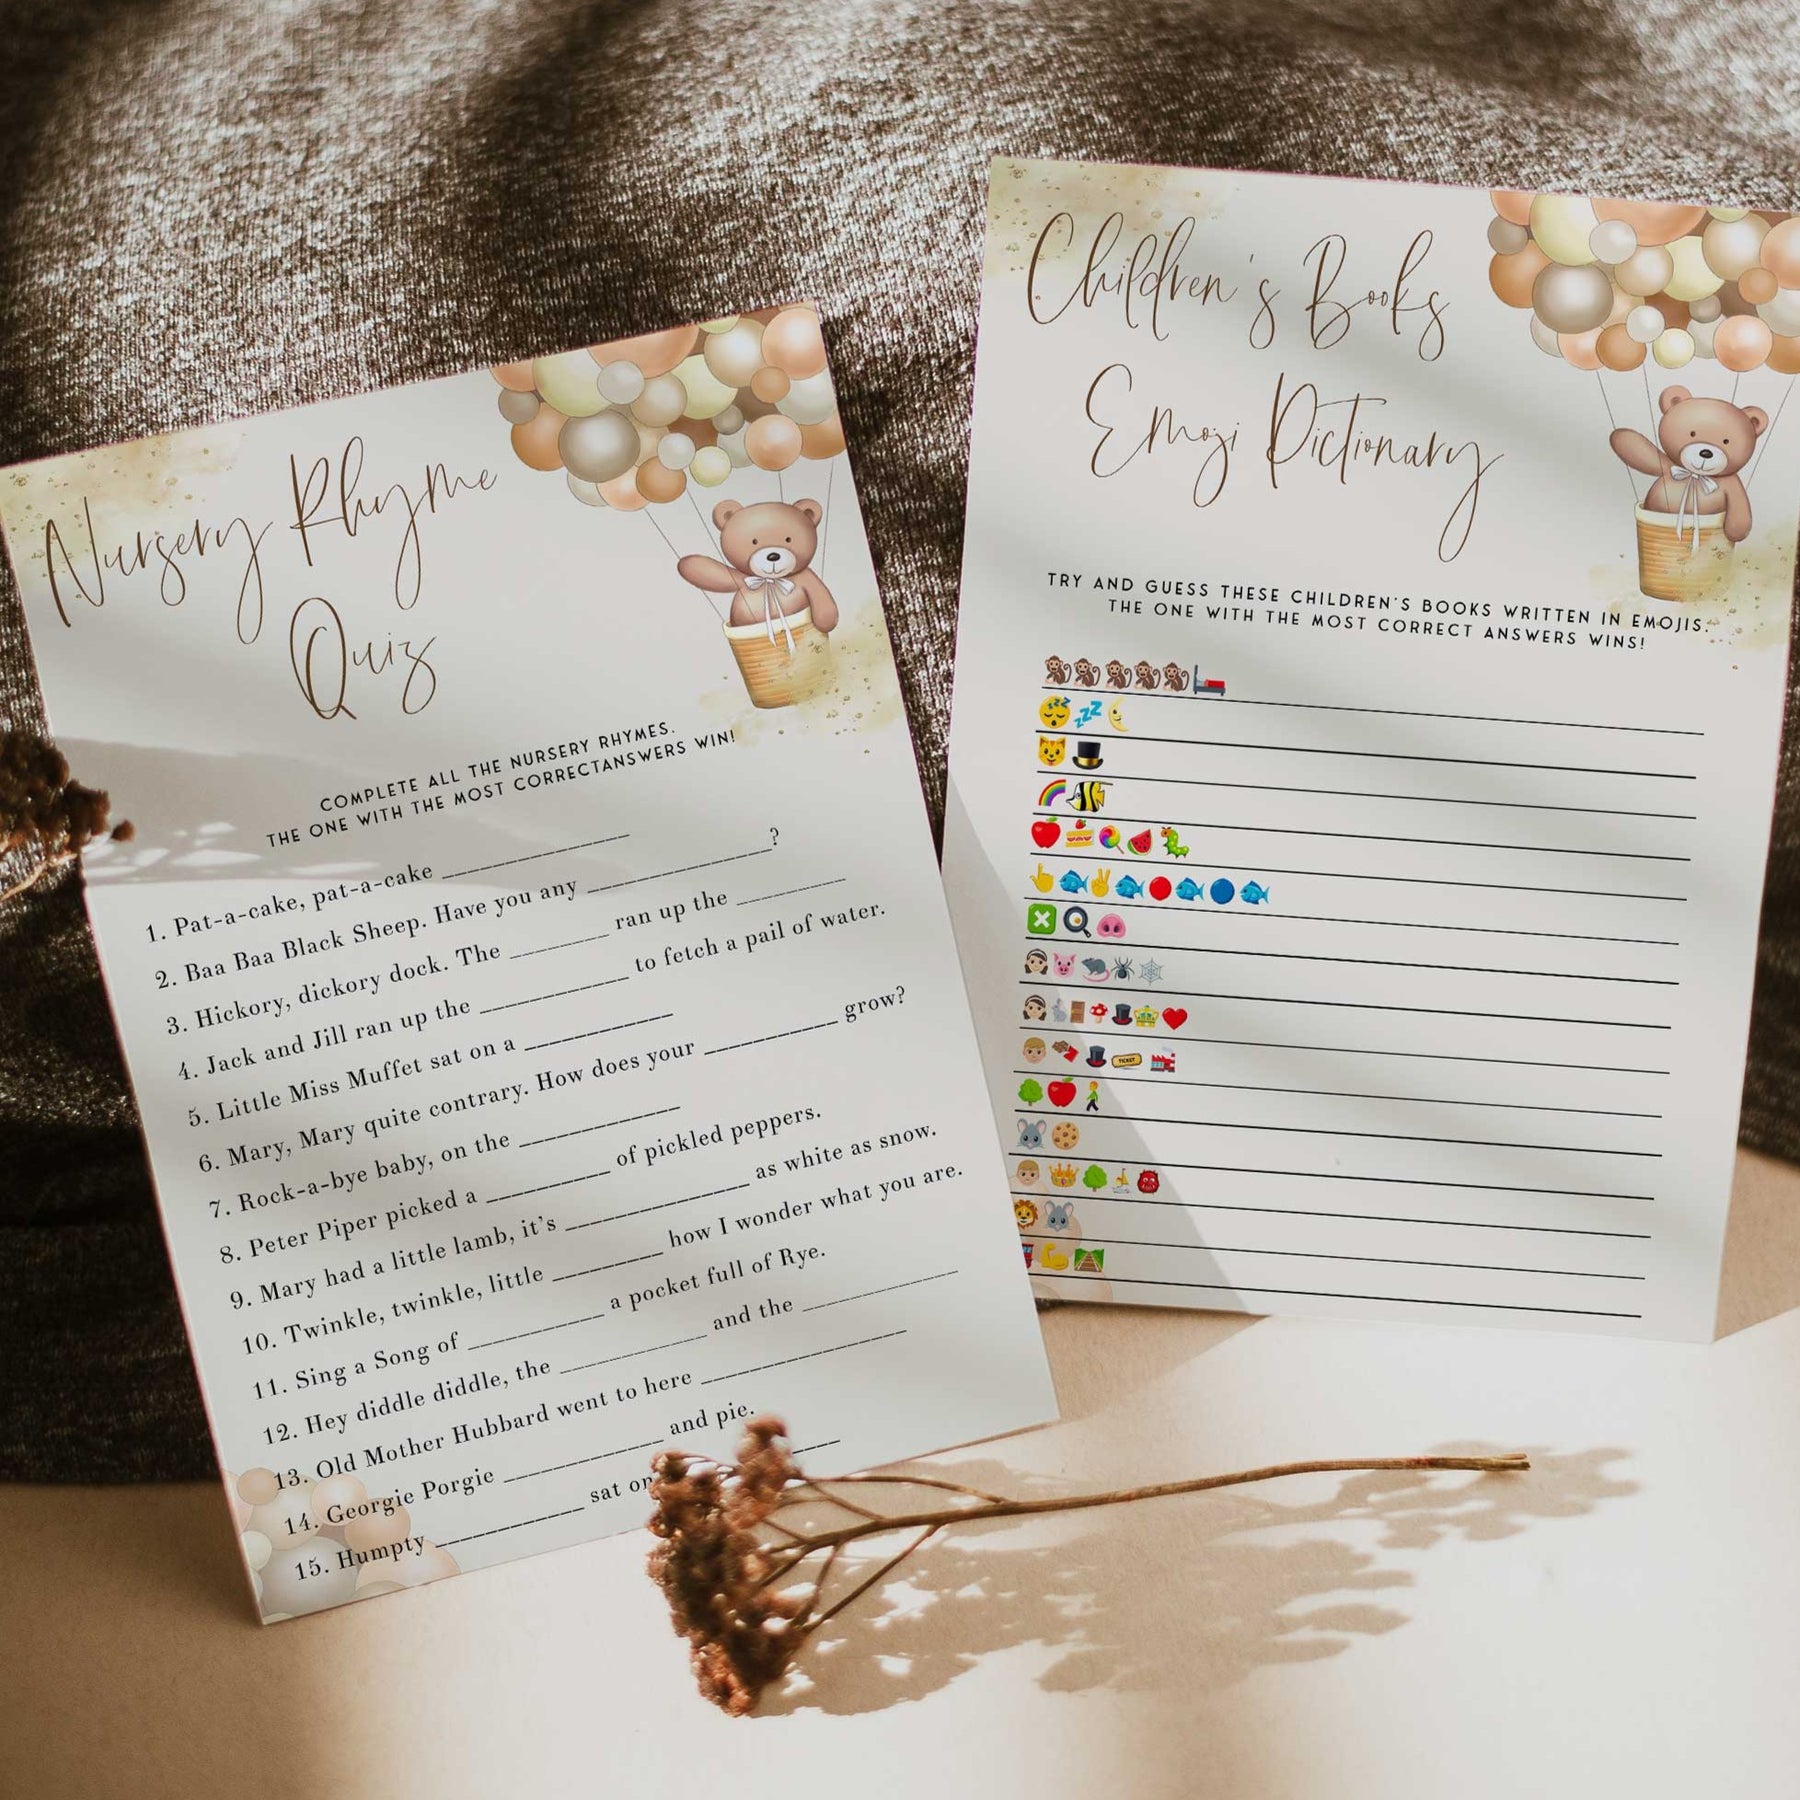 Nursery Rhyme
Quiz
COMPLETE ALL THE NURSERY RHYMES.
THE ONE WITH THE MOST CORRECTANSWERS WIN!
1. Pat-a-cake, pat-a-cake ____________
2. Baa Baa Black Sheep. Have you any ____________?
3. Hickory, dickory dock. The ______ ran up the ______
4. Jack and Jill ran up the _________ to fetch a pail of water.
5. Little Miss Muffet sat on a _________
6. Mary, Mary quite contrary. How does your _________ grow?
7. Rock-a-bye baby, on the __________
8. Peter Piper picked a ________ of pickled peppers.
9. Mary had a little lamb, it's ____________ as white as snow.
10. Twinkle, twinkle, little _______ how I wonder what you are.
11. Sing a Song of _________ a pocket full of Rye.
12. Hey diddle diddle, the _________ and the _________
13. Old Mother Hubbard went to here ____________
14. Georgie Porgie __________ and pie.
15. Humpty _________ sat on ____
Children's Books
Emoji Dictionary
TRY AND GUESS THESE CHILDREN'S BOOKS WRITTEN IN EMOJIS.
THE ONE WITH THE MOST CORRECT ANSWERS WINS!
TICKET